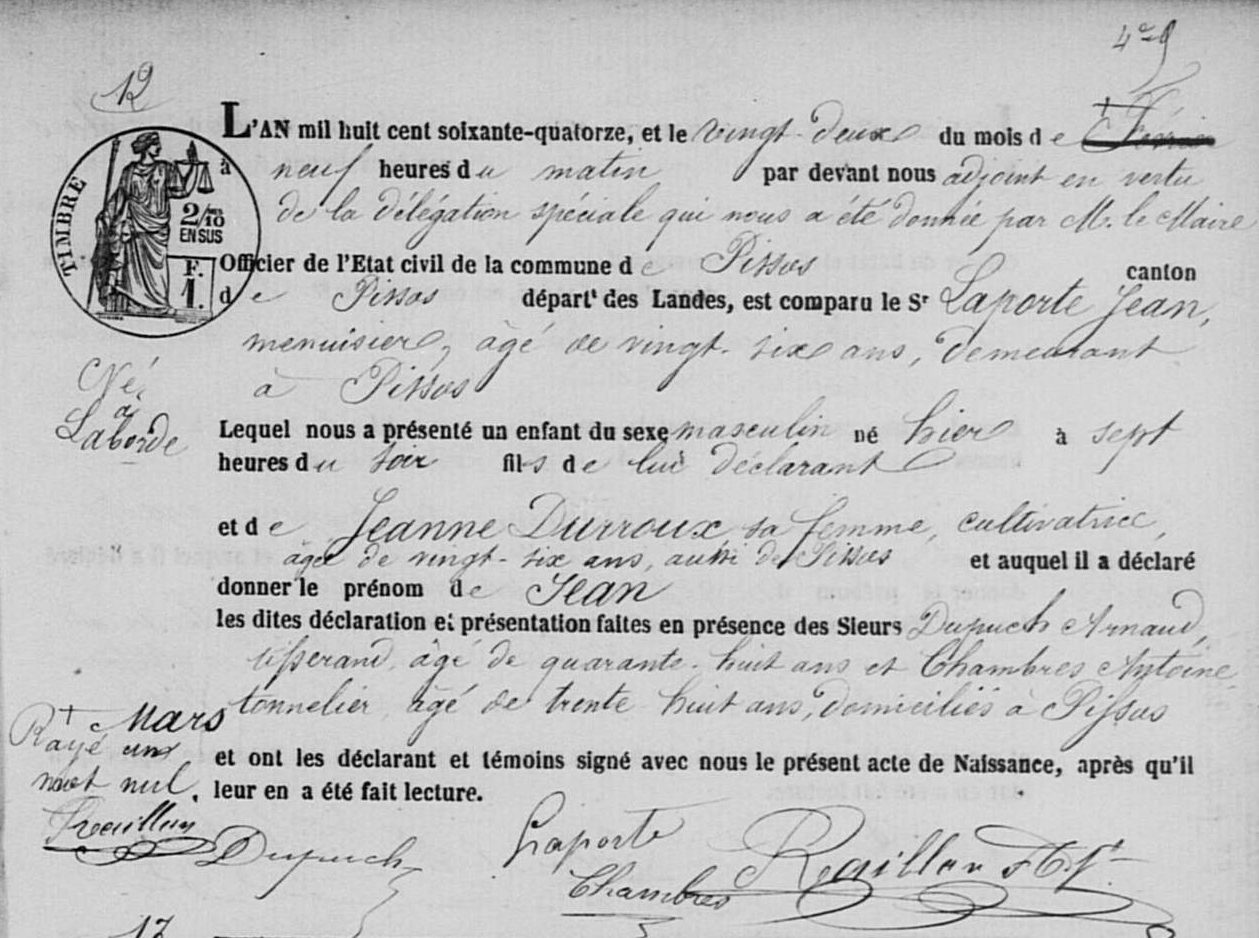 12
L'AN mil huit cent soixante-quatorze, et le vingt-deux du mois de + Février
à neuf heures du matin par devant nous adjoint en vertu
de la délégation spéciale qui nous a été donnée par M. le Maire
TIMBRE
2/10 EN SUS
F.
1.
Officier de l'Etat civil de la commune de Pissos canton
de Pissos départt des Landes, est comparu le Sr Laporte Jean,
menuisier, âgé de vingt-six ans, demeurant
à Pissos
Né
à
Laborde
Lequel nous a présenté un enfant du sexe masculin né hier à sept
heures du soir fils de lui déclarant
et de Jeanne Durroux, sa femme, cultivatrice,
âgée de vingt-six ans, aussi de Pissos et auquel il a déclaré
donner le prénom de Jean
les dites déclaration et présentation faites en présence des Sieurs Dupuch Arnaud,
tisserand, âgé de quarante-huit ans et Chambres Antoine
tonnelier, âgé de trente-huit ans, domiciliés à Pissos
+ Mars
Rayé un
mot nul.
et ont les déclarant et témoins signé avec nous le présent acte de Naissance, après qu'il
leur en a été fait lecture.
Dupuch
Laporte
Chambres
17